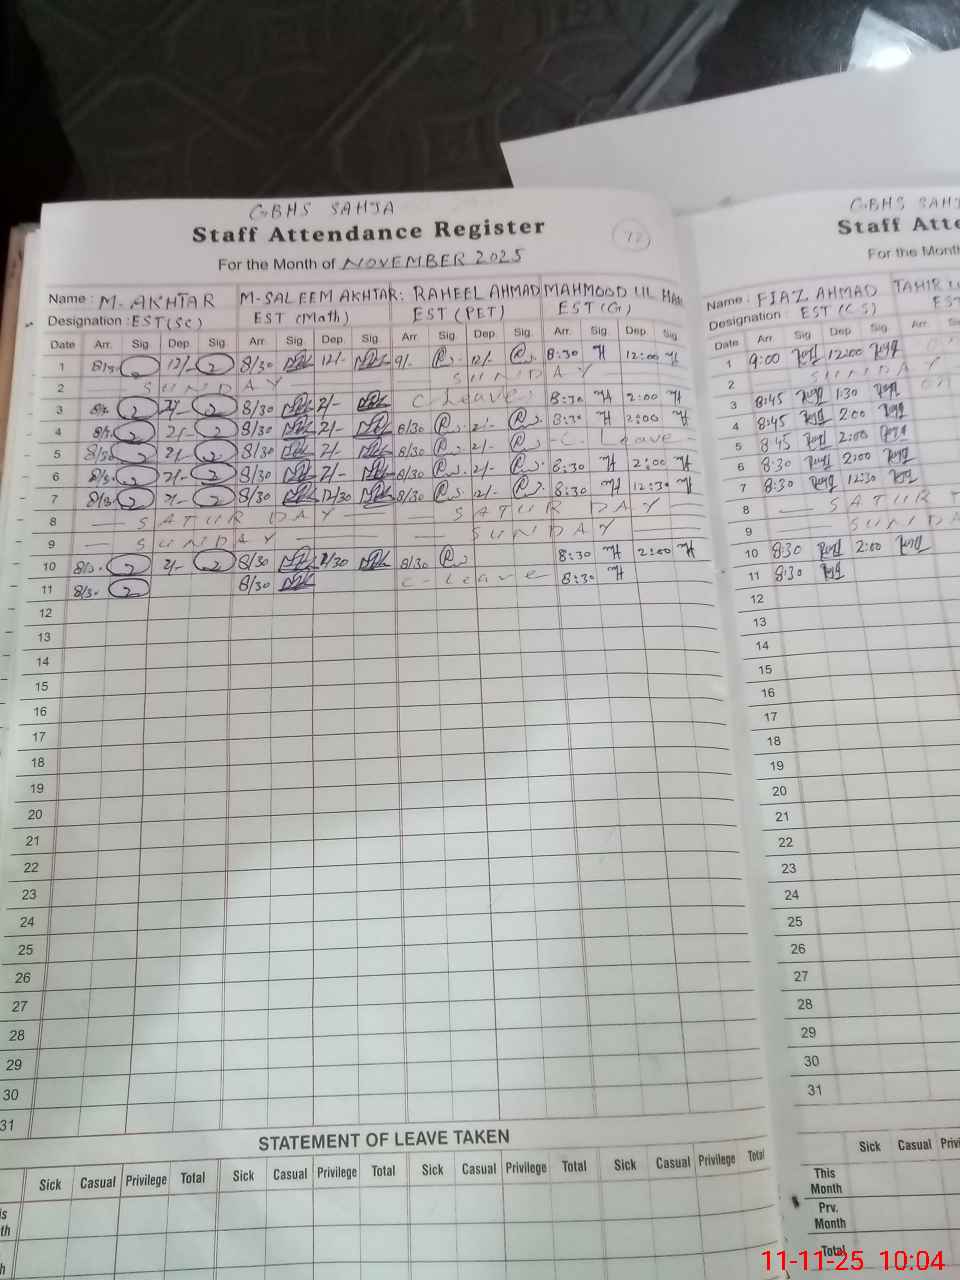 GBHS SAHJA
Staff Attendance Register
72
For the Month of NOVEMBER 2025
Name : M. AKHTAR M-SALEEM AKHTAR: RAHEEL AHMAD MAHMOOD UL
Designation : EST(SC) EST (Math) EST (PET) EST (G)
Date Arr. Sig Dep. Sig Arr. Sig. Dep. Sig. Arr Sig. Dep. Sig. Arr. Sig. Dep. Sig
1 12/- 8/30 12/- 9/- 12/- 8:30 12:00
2 SUNDAY SUNDAY
3 8/30 2/- C Leave 8:30 2:00
4 2/- 8/30 2/- 8/30 2/- 8:30 2:00
5 8/30 2/- 8/30 2/- 8/30 2/- -C. Leave-
6 8/30 2/- 8/30 2/- 8/30 2/- 8:30 2:00
7 8/30 8/30 12/30 8/30 12/- 8:30 12:30
8 SATURDAY SATURDAY
9 SUNDAY SUNDAY
10 8/30 2/- 8/30 8/30 8:30 2:00
11 8/30 8/30 C-Leave 8:30
12
13
14
15
16
17
18
19
20
21
22
23
24
25
26
27
28
29
30
31
STATEMENT OF LEAVE TAKEN
Sick Casual Privilege Total Sick Casual Privilege Total Sick Casual Privilege Total Sick Casual Privilege Total
GBHS
Staff Atte
For the Month
Name : FIAZ AHMAD TAHIR
Designation : EST (CS)
Date Arr Sig Dep Sig Arr. Sig
1 9:00 12:00
2 SUNDAY
3 8:45 1:30
4 8:45 2:00
5 8:45 2:00
6 8:30 2:00
7 8:30 12:30
8 SATUR
9 SUNDA
10 8:30 2:00
11 8:30
12
13
14
15
16
17
18
19
20
21
22
23
24
25
26
27
28
29
30
31
Sick Casual Privi
This Month
Prv. Month
Total
11-11-25 10:04